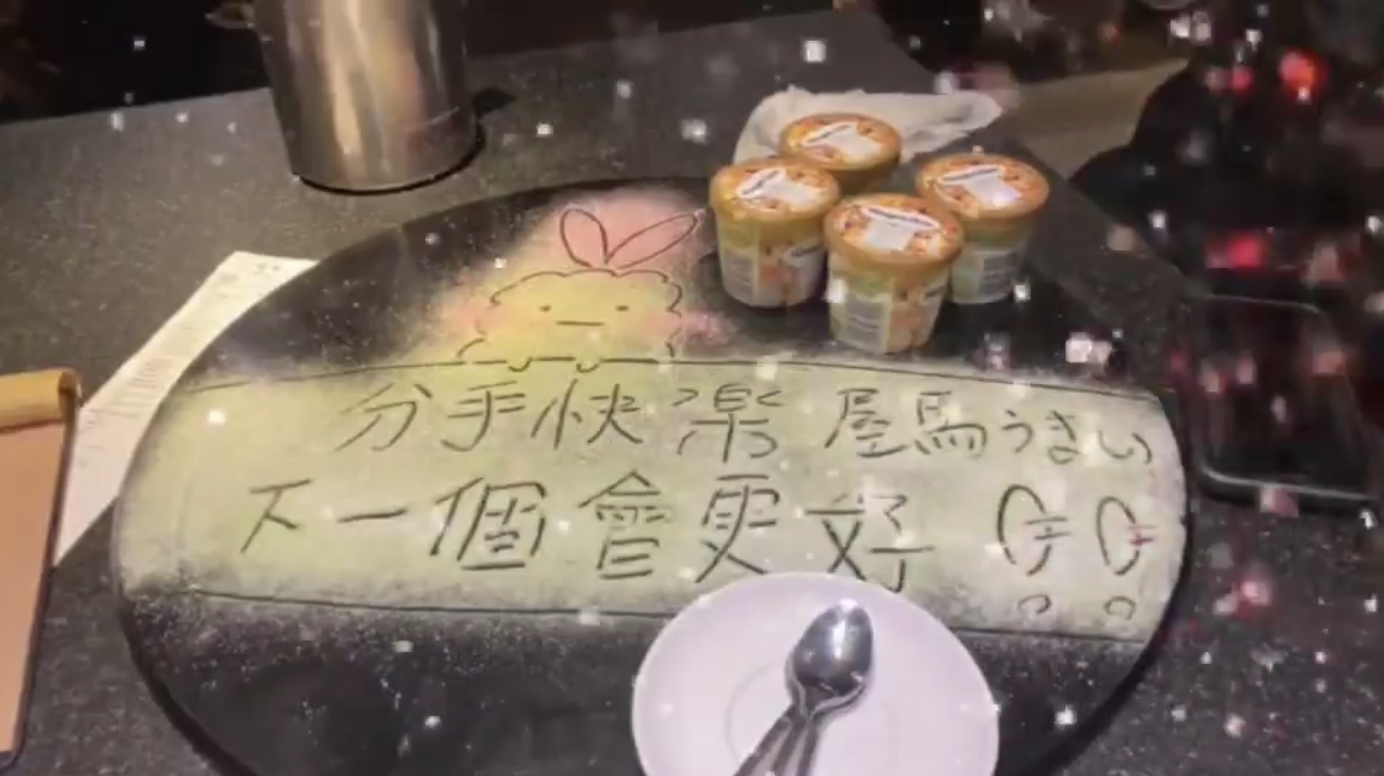 分手快樂 屋馬うまい
下一個會更好